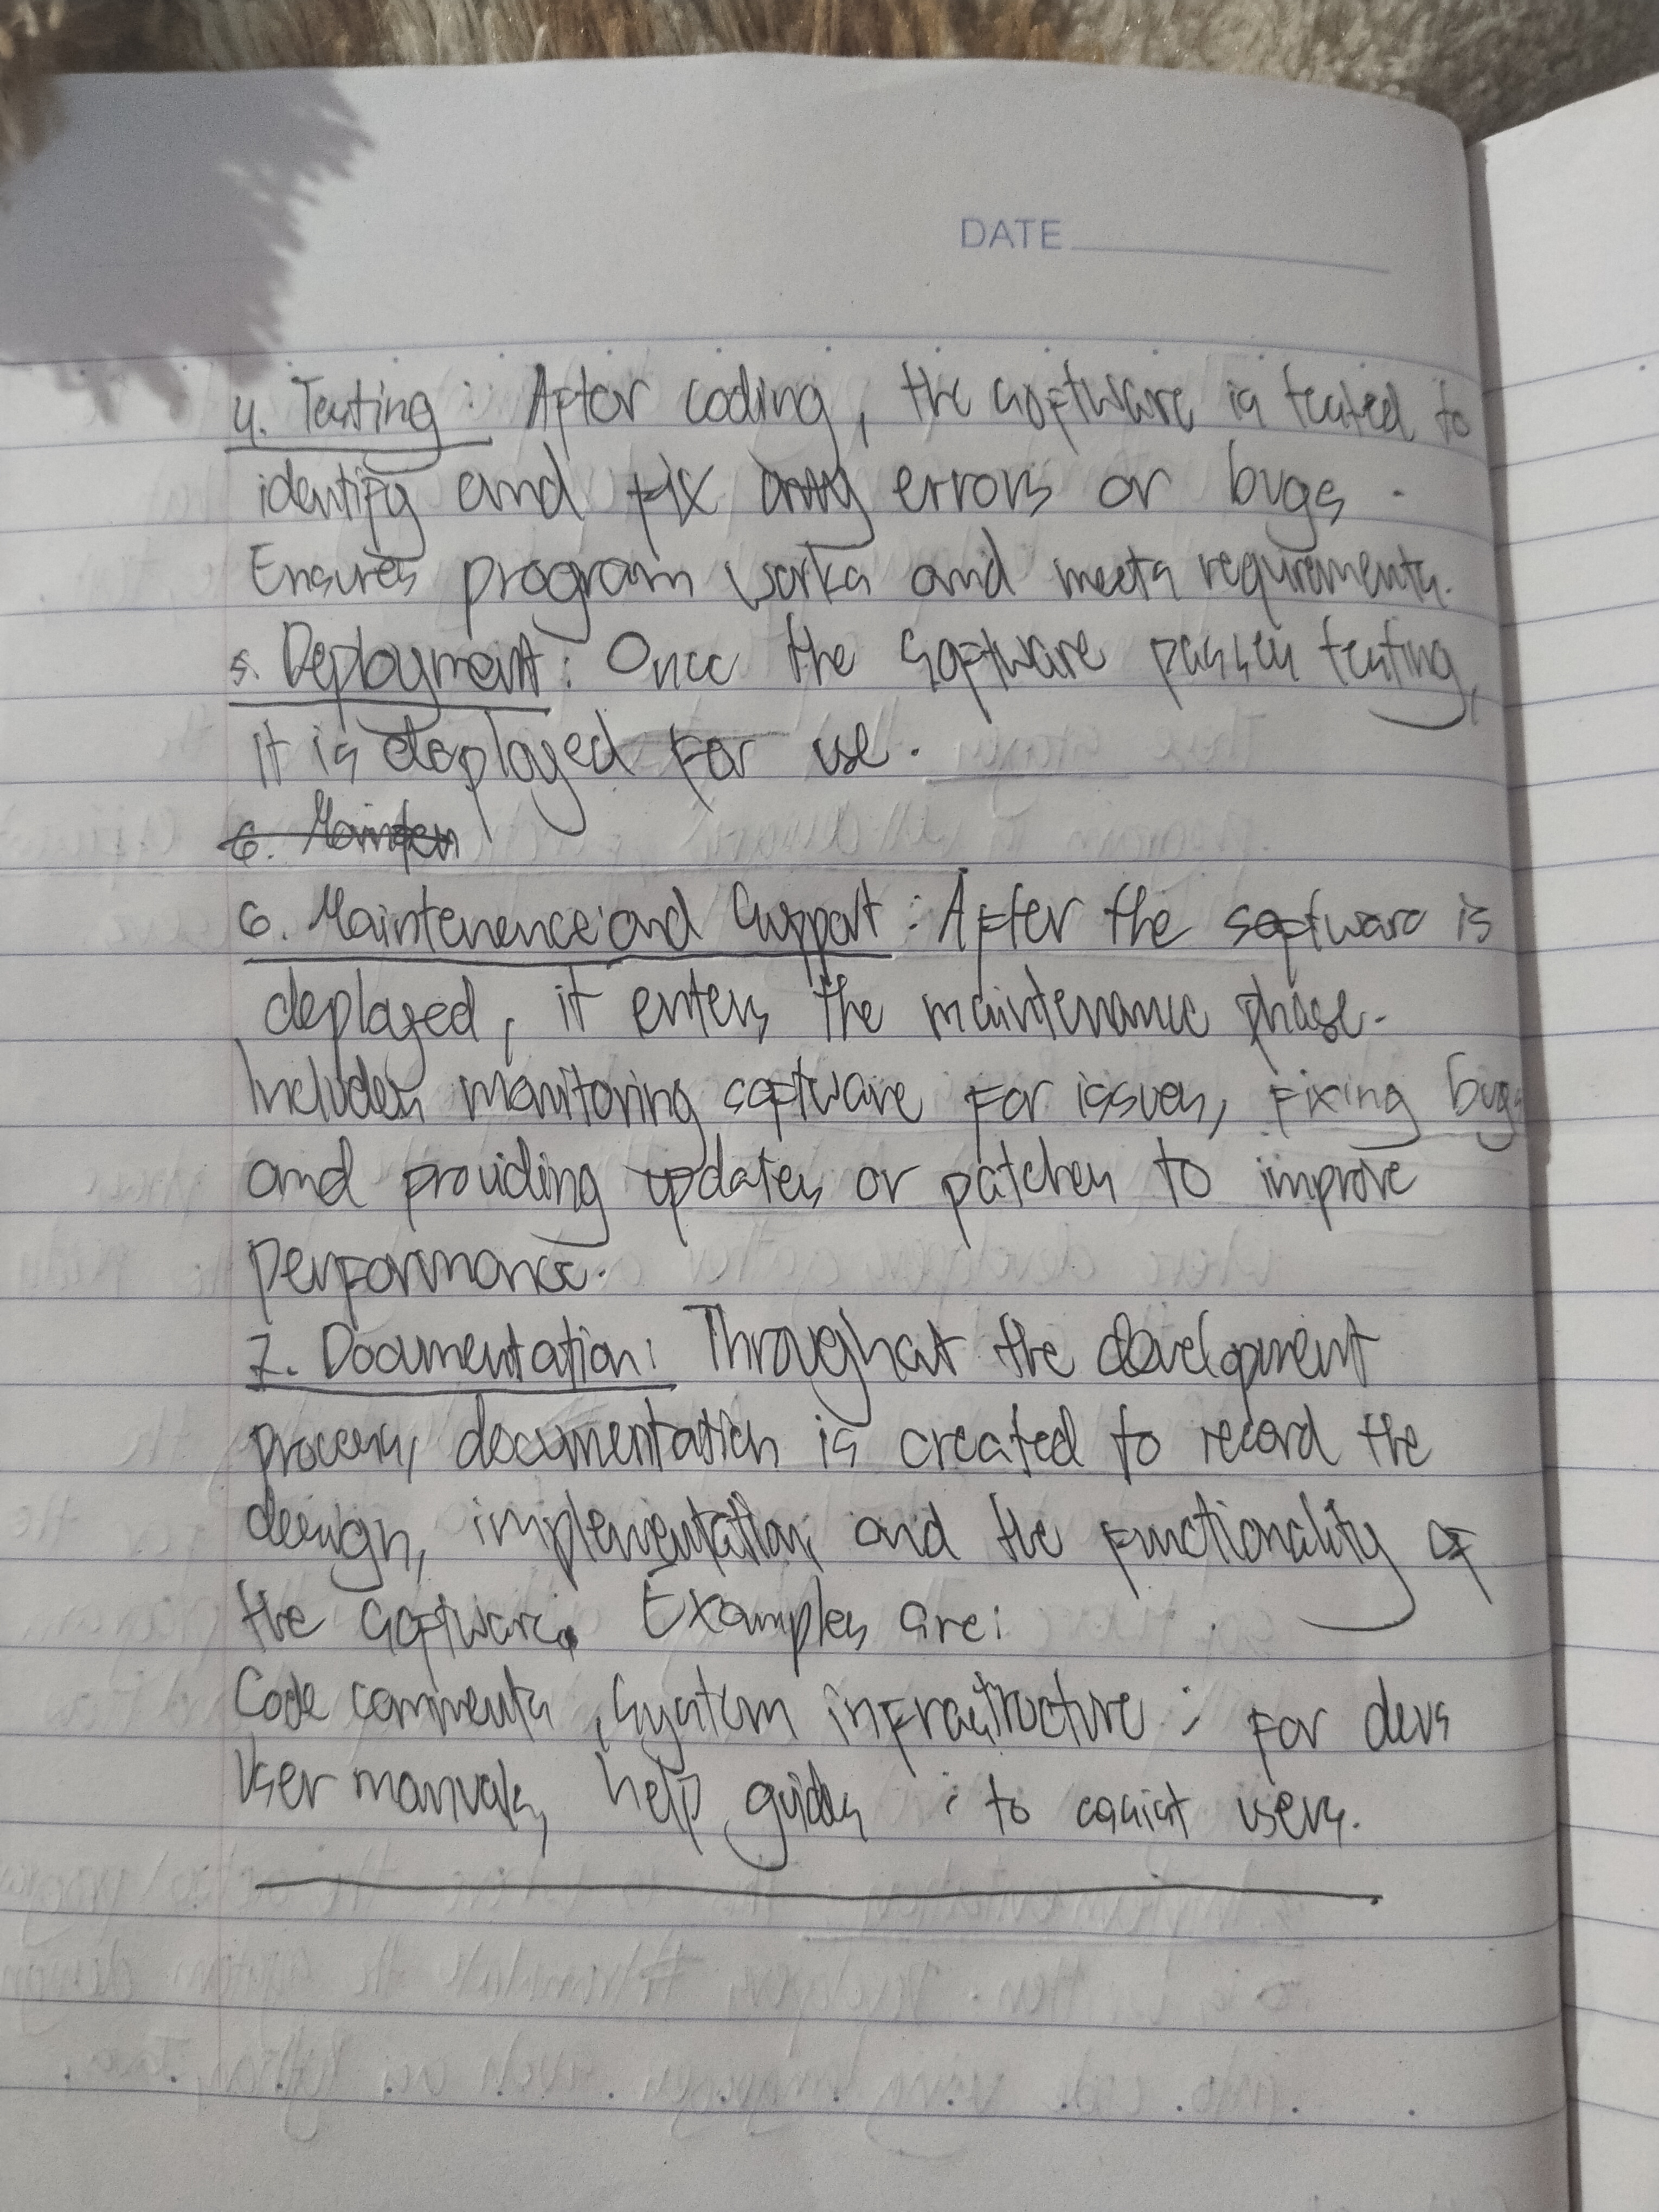 DATE
4. Testing : After coding, the software is tested to
identify and fix any errors or bugs .
Ensures program works and meets requirements.
5. Deployment : Once the software passes testing,
it is deployed for use .
6. Mainten
6. Maintenence and Support : After the software is
deployed, it enters the maintenance phase.
Includes monitoring software for issues, fixing bugs
and providing updates or patches to improve
performance.
7. Documentation : Throughout the development
process, documentation is created to record the
design, implementation, and the functionality of
the software. Examples are :
Code comments, system infrastructure : for devs
User manuals, help guides : to assist users.